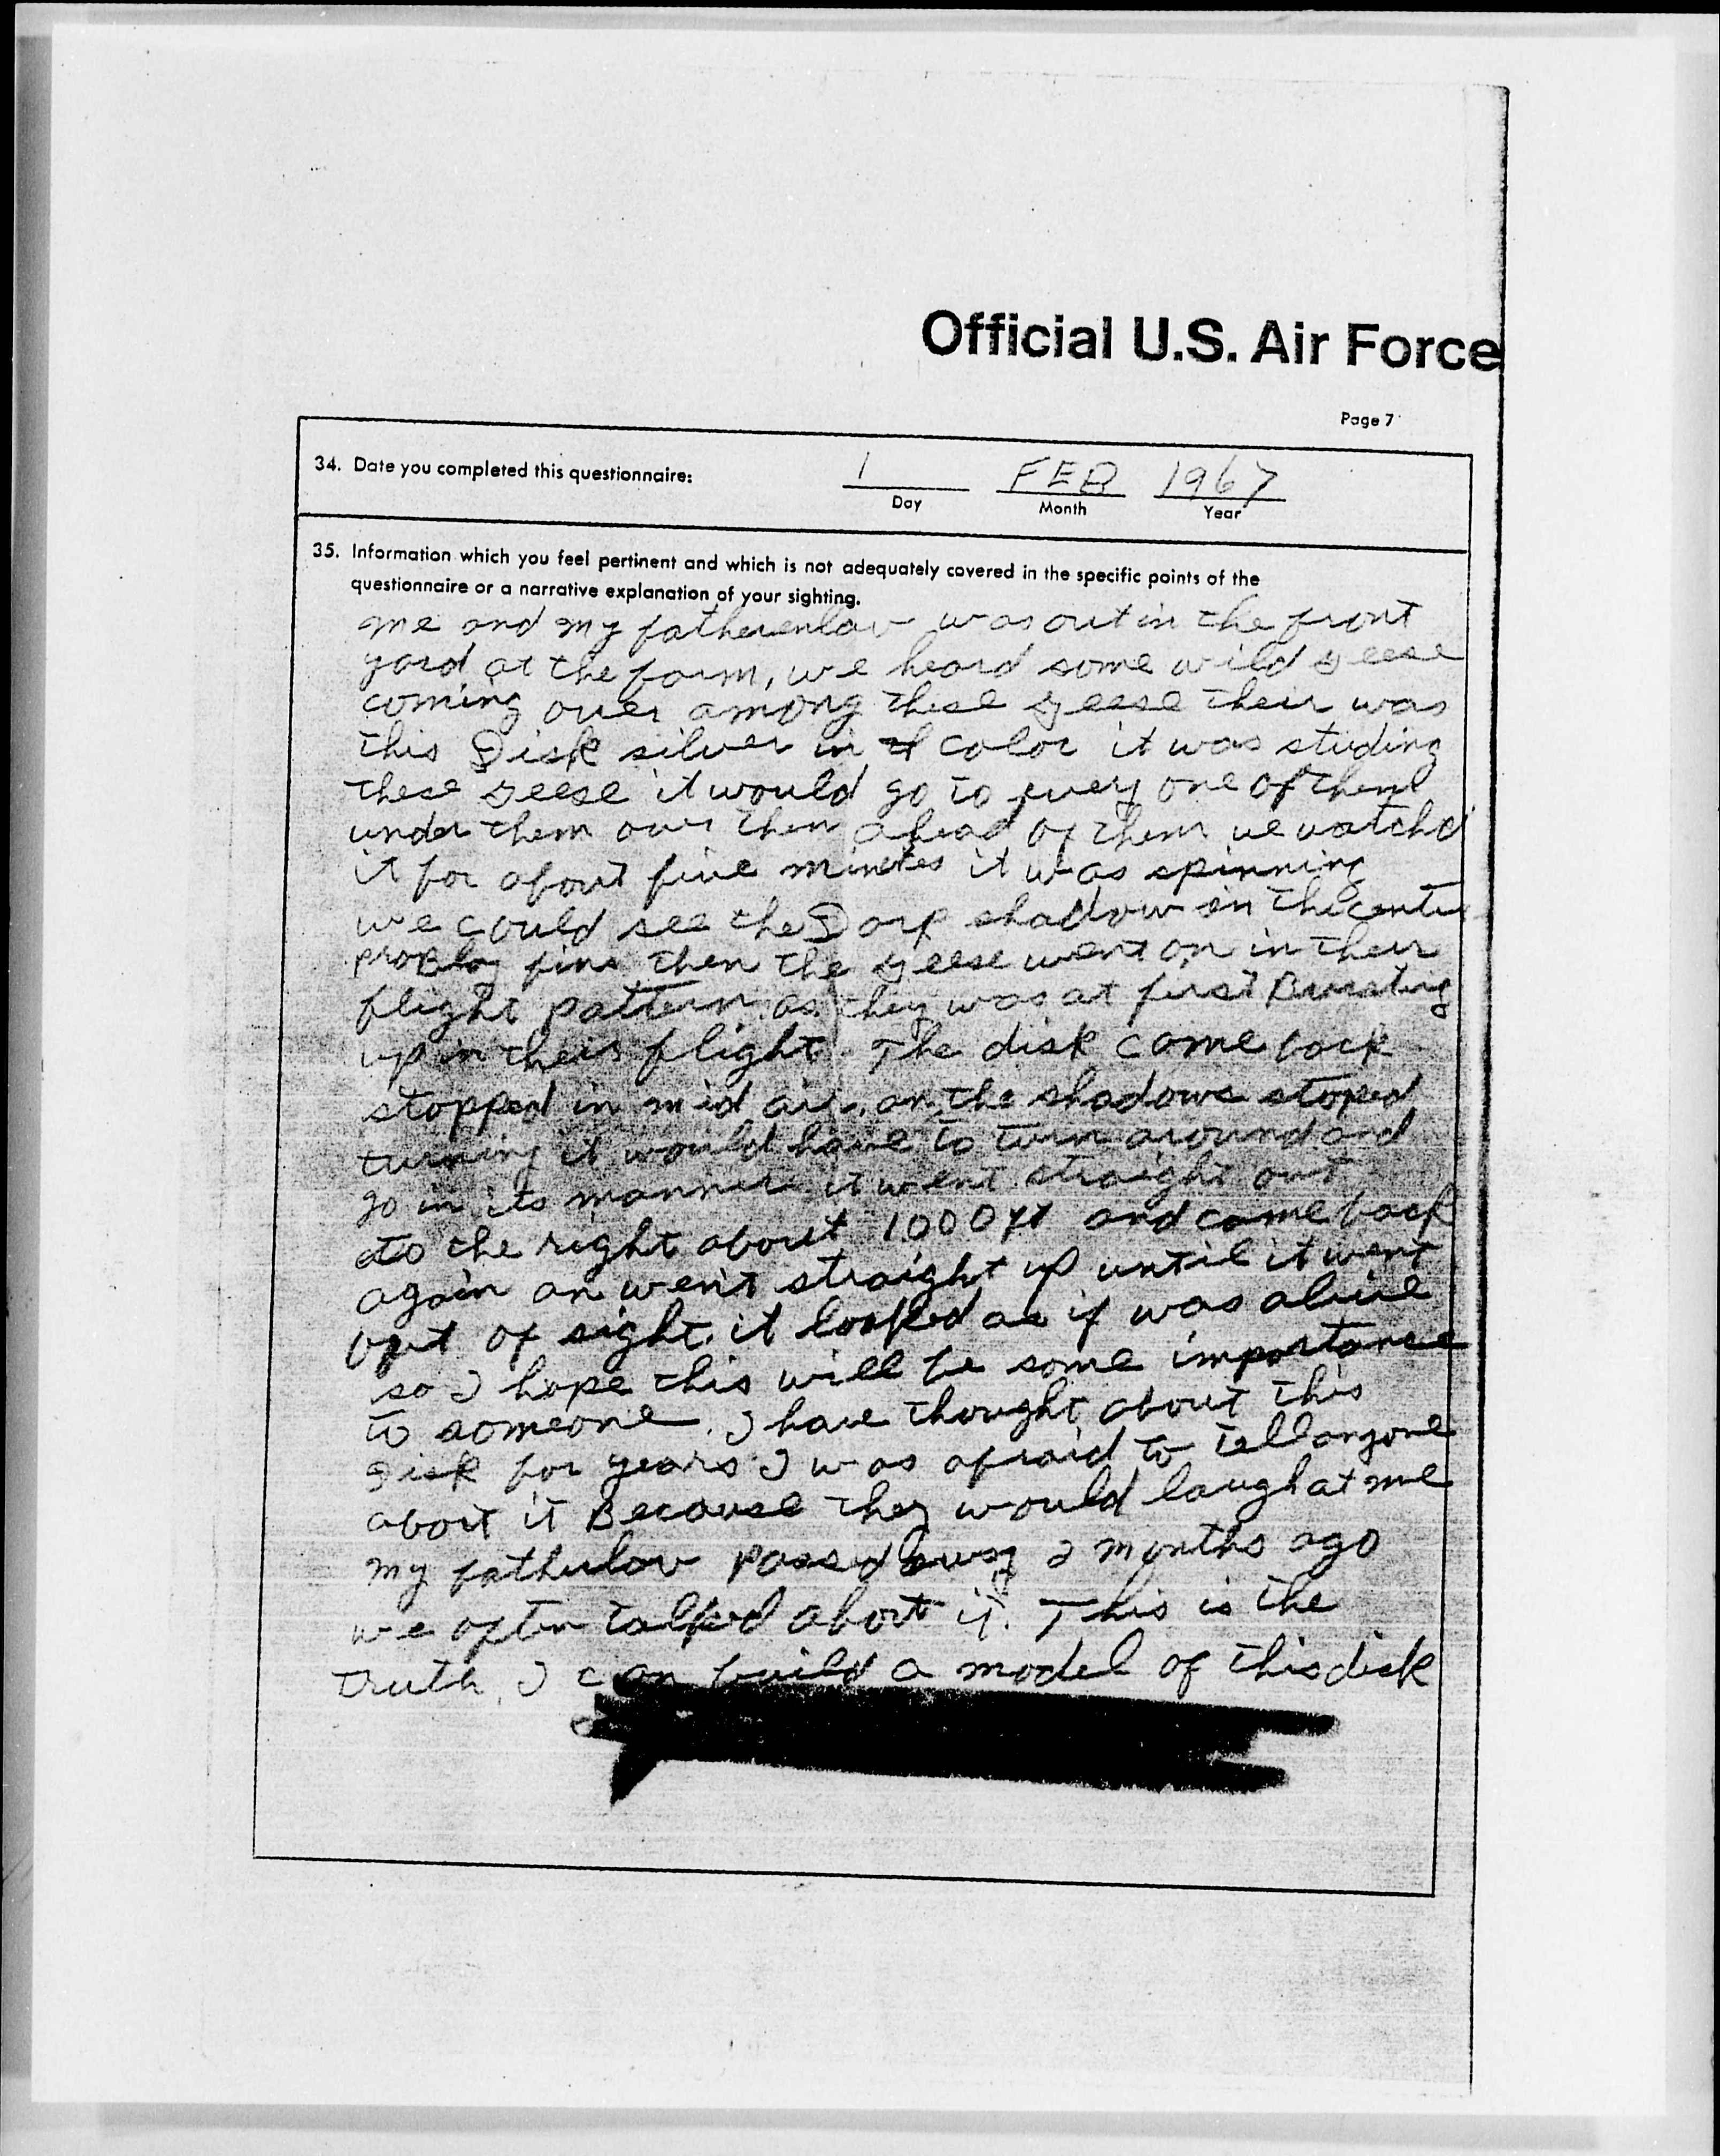 Official U.S. Air Force
Page 7
34. Date you completed this questionnaire:
1 FEB 1967
Day Month Year
35. Information which you feel pertinent and which is not adequately covered in the specific points of the
questionnaire or a narrative explanation of your sighting.
me and my fatherenlaw was out in the front
yard at the farm, we heard some wild geese
coming over among these geese their was
this Disk silver in color it was studing
these geese it would go to every one of them
under them over them ahead of them we watchd
it for about five minetes it was spinning
we could see the Dark shadow in the center
probly fins then the geese went on in their
flight pattern as they was at first
up in their flight. The disk come back
stopped in mid air, an the shadows stoped
turning it would have to turn around and
go in its manner it went straight out
to the right about 1000 and come back
again an went straight up until it went
out of sight. it looked as if was alive
so I hope this will be some importance
to someone. I have thought about this
Disk for years I was afraid to tell anyone
abort it Because they would laugh at me
my fatherlaw passed away 2 months ago
we often talked abort it. This is the
truth, I can build a model of this disk